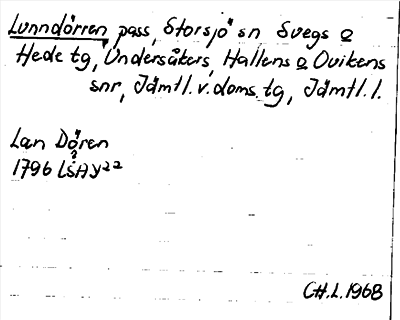 Lunndörren pass, Storsjö sn Svegs o
Hede tg, Undersåkers, Hallens o Ovikens
snr, Jämtl. v. doms. tg, Jämtl. l.
Lan Dören
1796 LSA Y22
C.H.L. 1968